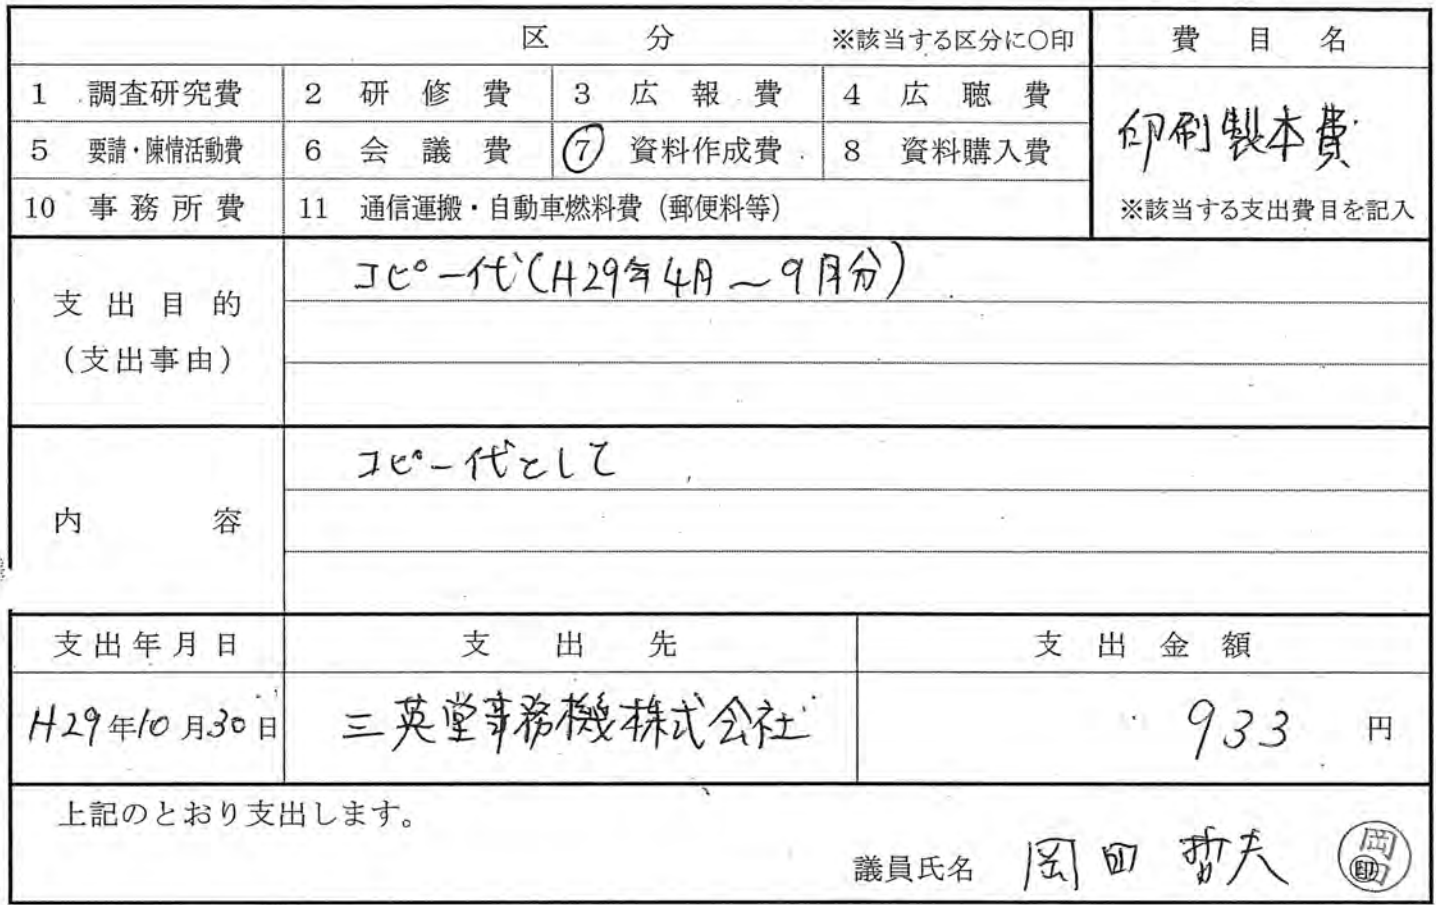 区 分 ※該当する区分に○印 費目名
1 調査研究費 2 研修費 3 広報費 4 広聴費
印刷製本費
5 要請・陳情活動費 6 会議費 ⑦ 資料作成費 8 資料購入費
10 事務所費 11 通信運搬・自動車燃料費（郵便料等） ※該当する支出費目を記入
コピー代(H29年4月～9月分)
支出目的
（支出事由）
コピー代として
内容
支出年月日 支出先 支出金額
H29年10月30日 三英堂事務機株式会社 933円
上記のとおり支出します。
議員氏名 岡田 哲夫 岡田 印